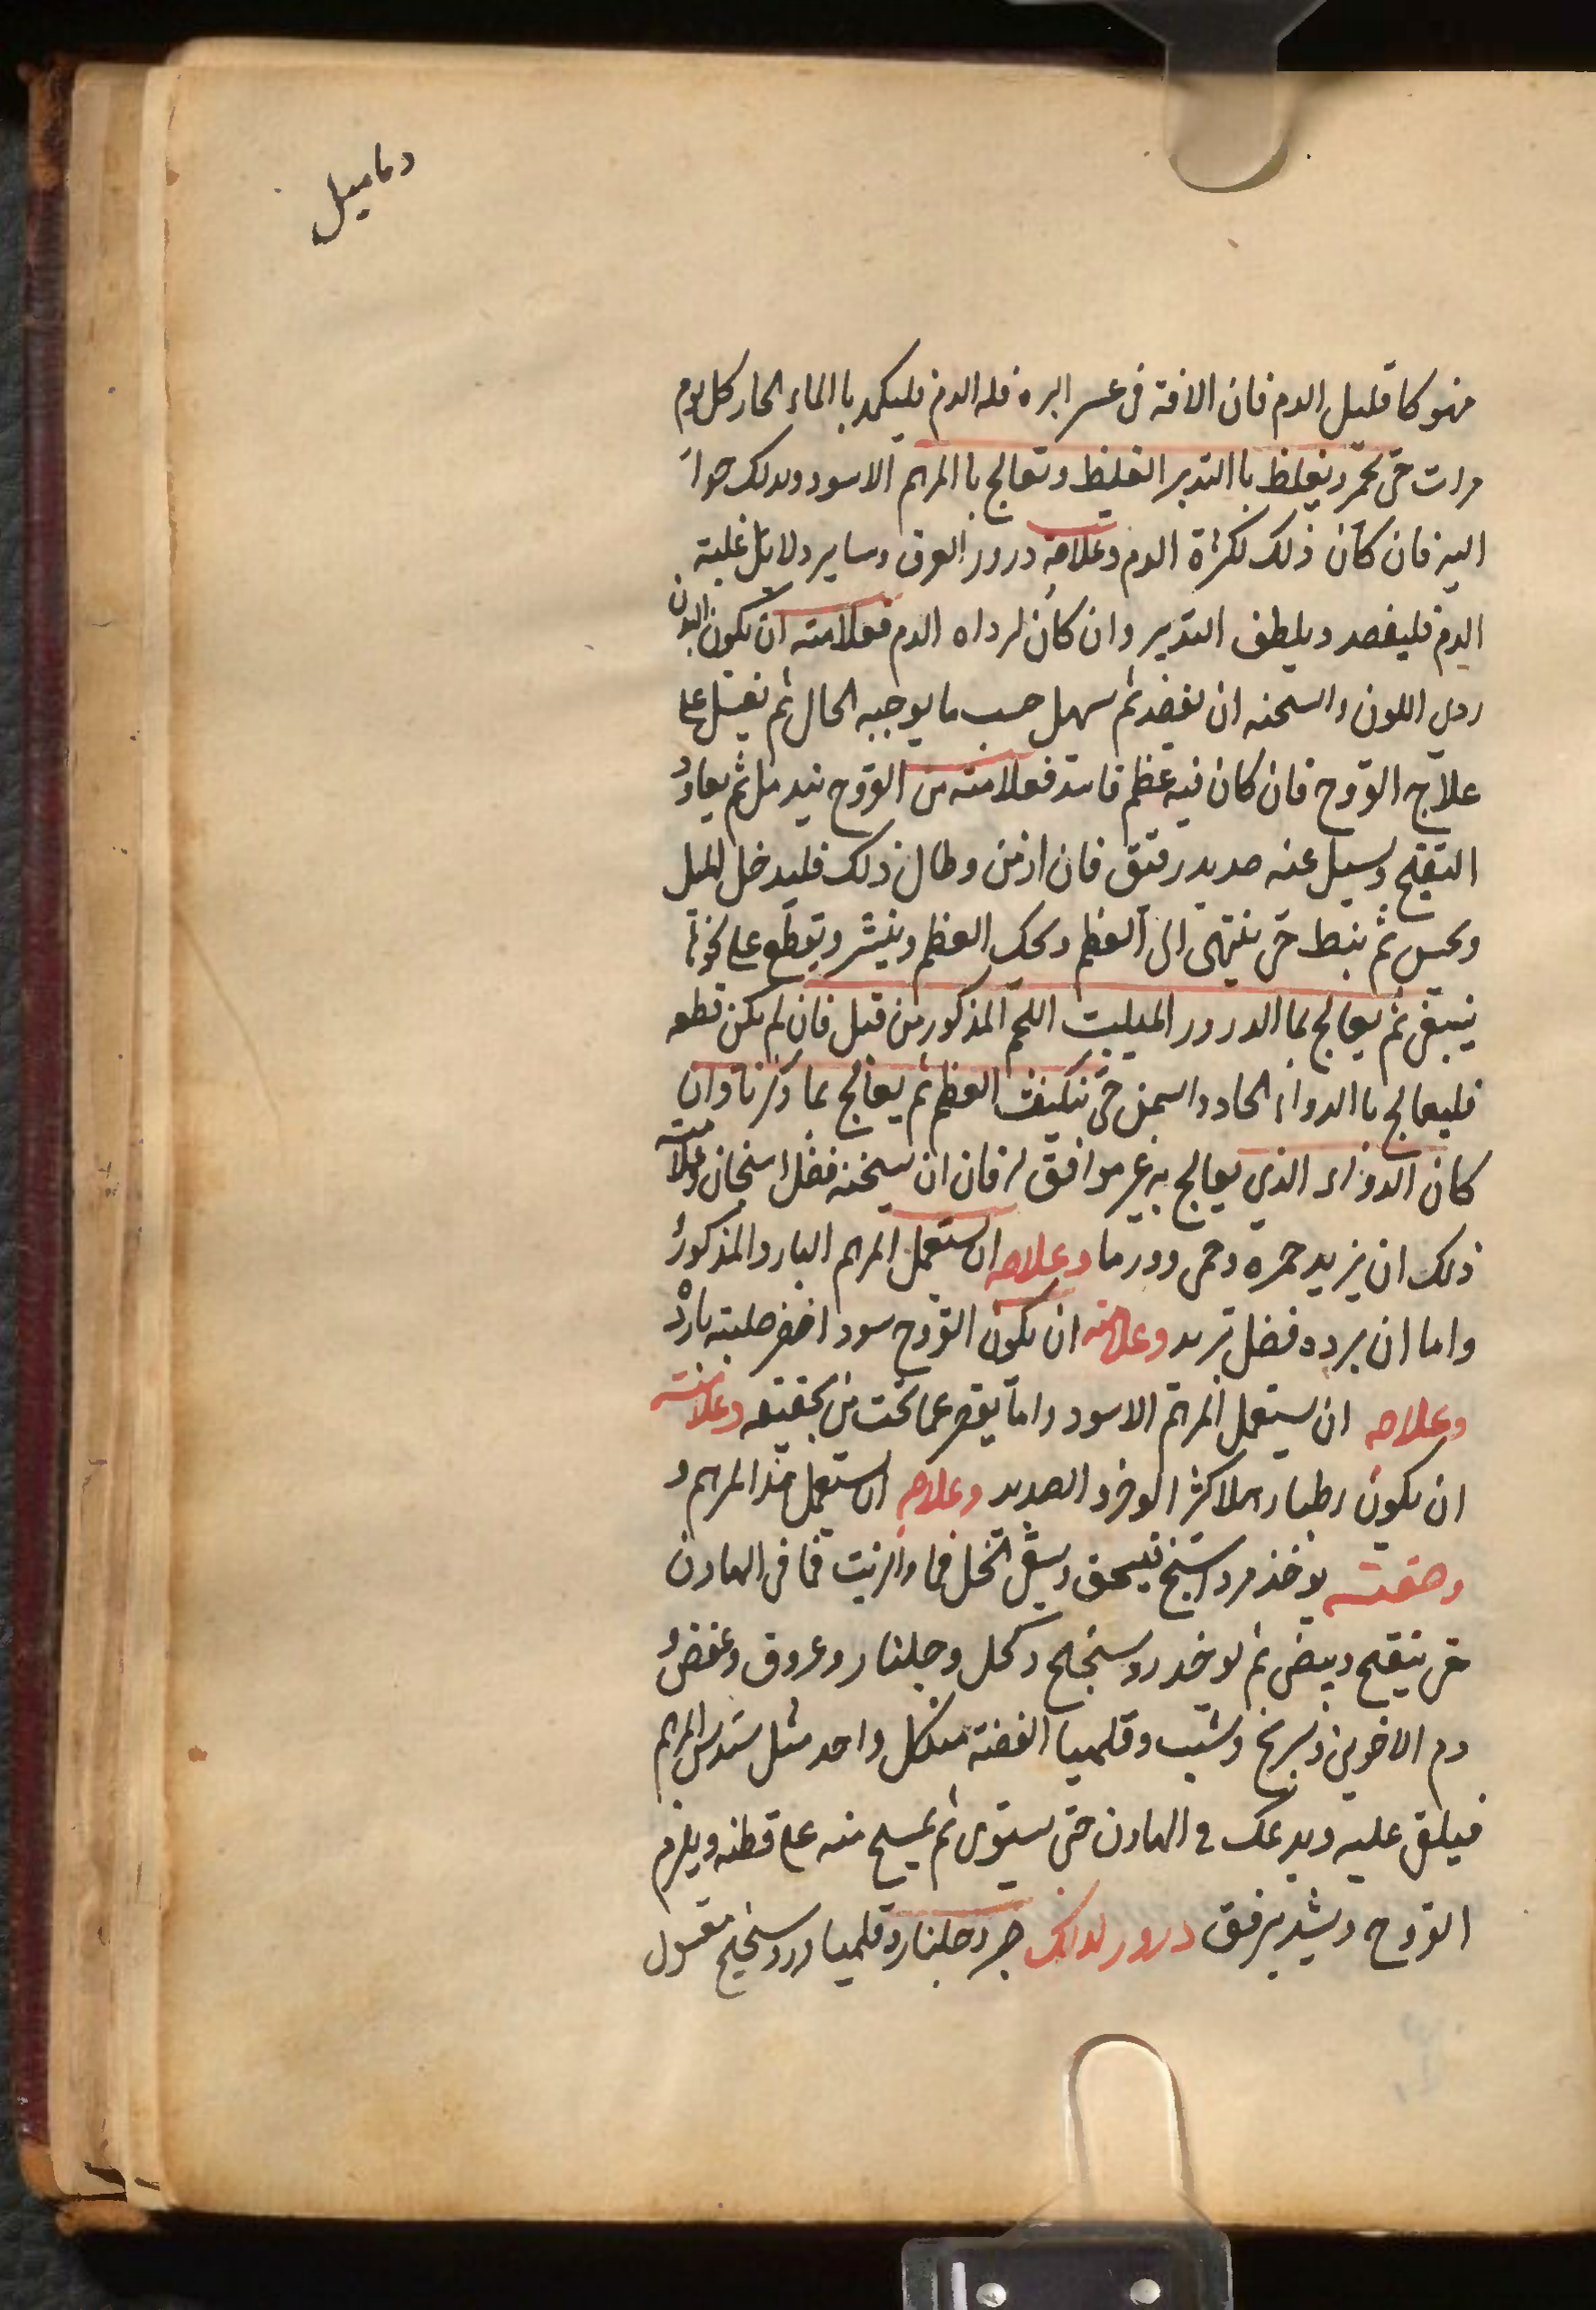 دماميل
منهوكا قليل الدم فان الافة فى عسر البره قله الدم فليكمد باالماء الحار كل يوم
مرات حتى تحمر ويغلظ باالتدبير الغليظ وتعالج باالمرهم الاسود وبدلك
اليه فان كان ذلك لكثرة الدم وعلامة درور العرق وساير دلايل غلبة
الدم فليفصد ويلطف التدبير وان كان لرداه الدم فعلامته ان يكون البدن
ردى اللون والسحنه ان يفصد ثم يسهل حسب ما يوجبه الحال ثم يقبل على
علاج القروح فان كان فيه عظم فاسد فعلامته من القروح يندمل ثم يعاود
التقيح ويسيل عنه صديد رقيق فان ازمن وطال ذلك فليدخل الميل
ويحس ثم يبط حتى ينتهى الى العظم ويحك العظم وينشر ويقطع على نحو ما
ينبغى ثم يعالج باالدرور المنبت اللحم المذكور من قبل فان لم يكن قطعه
فليعالج باالدواء الحاد والسمن حتى العظم ثم يعالج بما ذكرنا وان
كان الدواء الذي يعالج به غير موافق له فان ان يسخنه فضل اسخان وعلامته
ذلك ان يزيد حمرة وحمى وورما وعلاجه ان يستعمل المرهم البارد المذكورة
واما ان برده فضل تبريد وعلامته ان يكون القروح سود اخضر صلبته باردة
وعلاجه ان يستعمل المرهم الاسود واما يقصر عما تحت من تجفيفه وعلامته
ان يكون رطبا رهلا كثر الوضر والصديد وعلاجه ان يستعمل هذا المرهم و
وصفته يوخذ مرداسنج فيسحق ويسقى الخل مرا والزيت مرا فى الهاون
حتى ينتفخ ويبيض ثم يوخد روسختج وكحل وجلنار وعروق وعفص و
دم الاخوين وزرنيخ وشب وقلميا الفضة من كل واحد مثل سدس المرهم
فيلقى عليه ويدعك فى الهاون حتى يستوى ثم يمسح منه على قطنه ويلزم
القروح ويشد برفق درور لذلك وجلنار وقلميا وروسختج مغسول